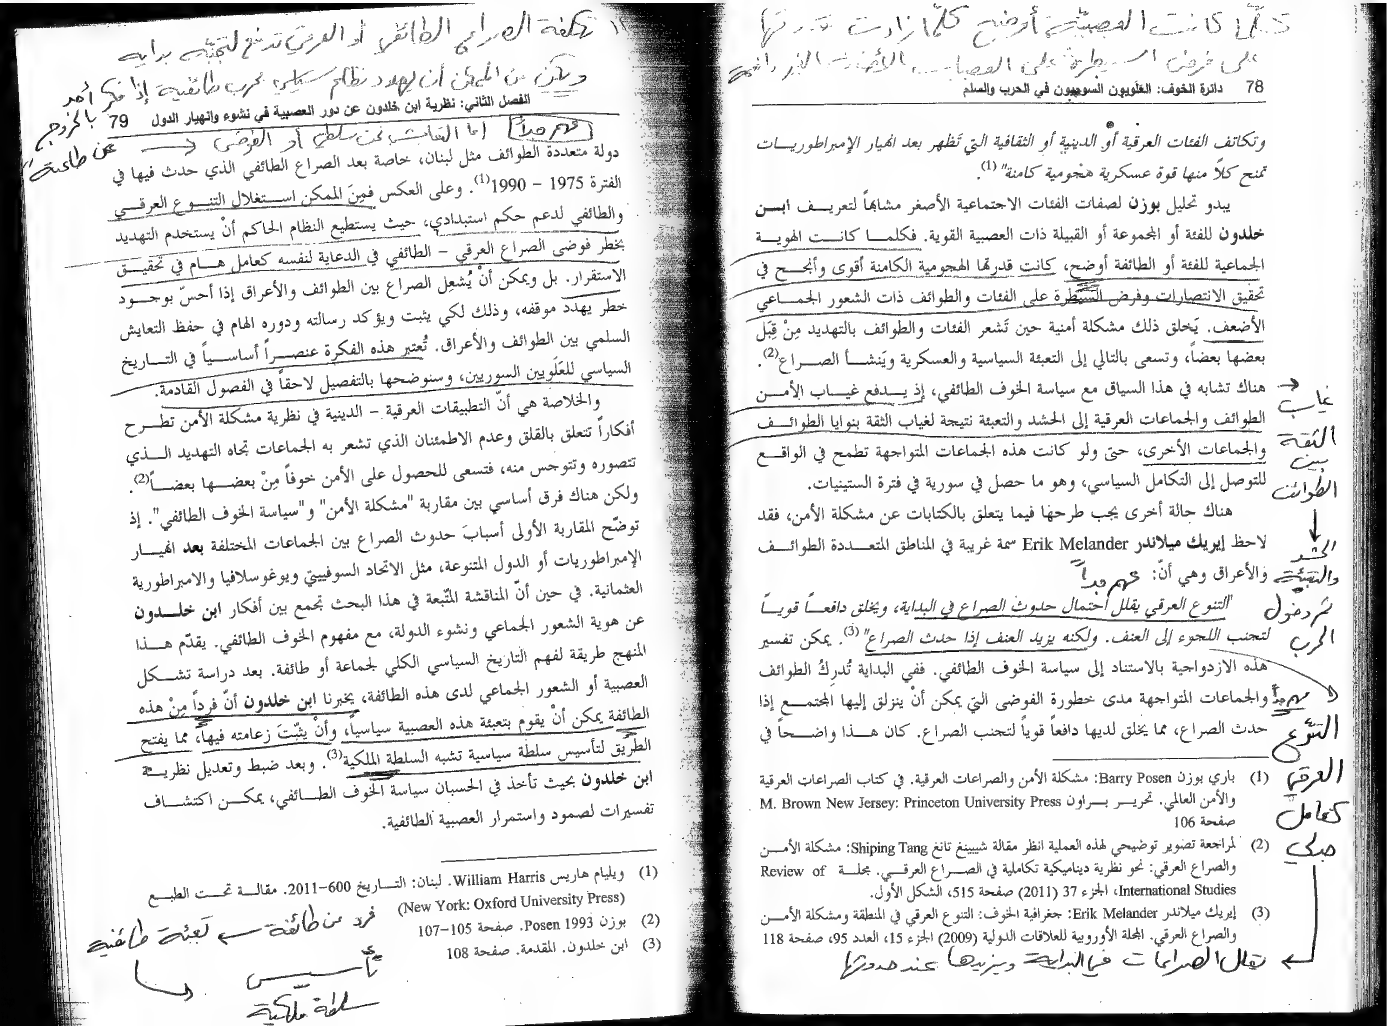 كلما كانت العصبية أوضح كلما زادت قدرتها
على فرض السيطرة على العصابات
78 دائرة الخوف: العَلَويون السوريون في الحرب والسلم
وتكاتف الفئات العرقية أو الدينية أو الثقافية التي تَظهر بعد انهيار الإمبراطوريات
تمنح كلاً منها قوة عسكرية هجومية كامنة" (1).
يبدو تحليل بوزن لصفات الفئات الاجتماعية الأصغر مشابهاً لتعريف ابن
خلدون للفئة أو المجموعة أو القبيلة ذات العصبية القوية. فكلما كانت الهوية
الجماعية للفئة أو الطائفة أوضح، كانت قدرتها الهجومية الكامنة أقوى وأنجح في
تحقيق الانتصارات وفرض السيطرة على الفئات والطوائف ذات الشعور الجماعي
الأضعف. يَخلق ذلك مشكلة أمنية حين تَشعر الفئات والطوائف بالتهديد مِنْ قِبَل
بعضها بعضاً، وتسعى بالتالي إلى التعبئة السياسية والعسكرية ويَنشأ الصراع(2).
هناك تشابه في هذا السياق مع سياسة الخوف الطائفي، إذ يدفع غياب الأمن
الطوائف والجماعات العرقية إلى الحشد والتعبئة نتيجة لغياب الثقة بنوايا الطوائف
والجماعات الأخرى، حتى ولو كانت هذه الجماعات المتواجهة تطمح في الواقع
للتوصل إلى التكامل السياسي، وهو ما حصل في سورية في فترة الستينيات.
هناك حالة أخرى يجب طرحها فيما يتعلق بالكتابات عن مشكلة الأمن، فقد
لاحظ إيريك ميلاندر Erik Melander سمة غريبة في المناطق المتعددة الطوائف
والأعراق وهي أنّ:
مهم جداً
"التنوع العرقي يقلل احتمال حدوث الصراع في البداية، ويخلق دافعاً قوياً
لتجنب اللجوء إلى العنف. ولكنه يزيد العنف إذا حدث الصراع" (3). يمكن تفسير
هذه الازدواجية بالاستناد إلى سياسة الخوف الطائفي. ففي البداية تُدرِكُ الطوائف
والجماعات المتواجهة مدى خطورة الفوضى التي يمكن أنْ ينزلق إليها المجتمع إذا
حدث الصراع، مما يخلق لديها دافعاً قوياً لتجنب الصراع. كان هذا واضحاً في
غياب
الثقة
بين
الطوائف
الحشد
والتعبئة
ثم دخول
الحرب
مهم جداً
التنوع
العرقي
كعامل
جدلي
(1) باري بوزن Barry Posen: مشكلة الأمن والصراعات العرقية. في كتاب الصراعات العرقية
والأمن العالمي. تحرير براون M. Brown New Jersey: Princeton University Press
صفحة 106
(2) لمراجعة تصوير توضيحي لهذه العملية انظر مقالة شيبينغ تانغ Shiping Tang: مشكلة الأمن
والصراع العرقي: نحو نظرية ديناميكية تكاملية في الصراع العرقي. مجلة Review of
International Studies، الجزء 37 (2011) صفحة 515، الشكل الأول.
(3) إيريك ميلاندر Erik Melander: جغرافية الخوف: التنوع العرقي في المنطقة ومشكلة الأمن
والصراع العرقي. المجلة الأوروبية للعلاقات الدولية (2009) الجزء 15، العدد 95، صفحة 118
تقلل الصراعات في البداية ويزيدها عند حدوثها
تكلفة الصراع الطائفي أو العرقي تدفع لتجنبه بداية
ويمكن من الممكن أن يهدد نظام سياسي بحرب طائفية إذا فكر أحد
بالخروج
عن طاعته
الفصل الثاني: نظرية ابن خلدون عن دور العصبية في نشوء وانهيار الدول 79
مهم جداً
دولة متعددة الطوائف مثل لبنان، خاصة بعد الصراع الطائفي الذي حدث فيها في
الفترة 1975 – 1990(1). وعلى العكس فمِنَ الممكن استغلال التنوع العرقي
والطائفي لدعم حكم استبدادي، حيث يستطيع النظام الحاكم أنْ يستخدم التهديد
بخطر فوضى الصراع العرقي – الطائفي في الدعاية لنفسه كعامل هام في تحقيق
الاستقرار. بل ويمكن أنْ يُشعِل الصراع بين الطوائف والأعراق إذا أحسّ بوجود
خطر يهدّد موقفه، وذلك لكي يثبت ويؤكد رسالته ودوره الهام في حفظ التعايش
السلمي بين الطوائف والأعراق. تُعتبر هذه الفكرة عنصراً أساسياً في التاريخ
السياسي للعَلَويين السوريين، وسنوضحها بالتفصيل لاحقاً في الفصول القادمة.
والخلاصة هي أنّ التطبيقات العرقية – الدينية في نظرية مشكلة الأمن تطرح
أفكاراً تتعلق بالقلق وعدم الاطمئنان الذي تشعر به الجماعات تجاه التهديد الذي
تتصوره وتتوجس منه، فتسعى للحصول على الأمن خوفاً مِنْ بعضها بعضاً(2).
ولكن هناك فرق أساسي بين مقاربة "مشكلة الأمن" و"سياسة الخوف الطائفي". إذ
توضّح المقاربة الأولى أسبابَ حدوث الصراع بين الجماعات المختلفة بعد انهيار
الإمبراطوريات أو الدول المتنوعة، مثل الاتحاد السوفييتي ويوغوسلافيا والامبراطورية
العثمانية. في حين أنّ المناقشة المتّبعة في هذا البحث تجمع بين أفكار ابن خلدون
عن هوية الشعور الجماعي ونشوء الدولة، مع مفهوم الخوف الطائفي. يقدّم هذا
المنهج طريقة لفهم التاريخ السياسي الكلي لجماعة أو طائفة. بعد دراسة تشكل
العصبية أو الشعور الجماعي لدى هذه الطائفة، يخبرنا ابن خلدون أنّ فرداً مِنْ هذه
الطائفة يمكن أنْ يقوم بتعبئة هذه العصبية سياسياً، وأنْ يثبّتَ زعامته فيها، مما يفتح
الطريق لتأسيس سلطة سياسية تشبه السلطة الملكية(3). وبعد ضبط وتعديل نظرية
ابن خلدون بحيث تأخذ في الحسبان سياسة الخوف الطائفي، يمكن اكتشاف
تفسيرات لصمود واستمرار العصبية الطائفية.
(1) ويليام هاريس William Harris. لبنان: التاريخ 600–2011. مقالة تحت الطبع
(New York: Oxford University Press)
(2) بوزن Posen 1993. صفحة 105–107
(3) ابن خلدون. المقدمة. صفحة 108
فرد من طائفة ← تعبئة طائفية
تأسيس
سلطة ملكية